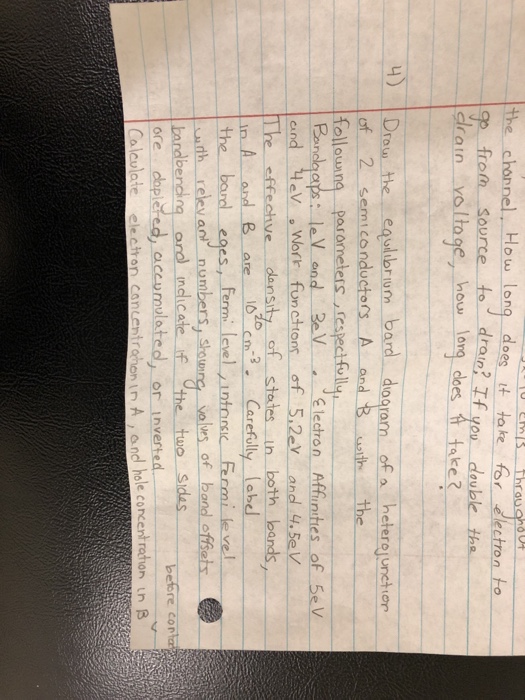 throughout
the channel. How long does it take for electron to
go from source to drain? If you double the
drain voltage, how long does it take?
4) Draw the equilibrium band diagram of a heterojunction
of 2 semiconductors A and B with the
following parameters, respectfully,
Bandgaps: 1eV and 3eV. Electron Affinities of 5eV
and 4eV. Work functions of 5.2eV and 4.5eV
The effective density of states in both bands,
in A and B are 10^20 cm^-3. Carefully label
the band eges, Fermi level, intrinsic Fermi level
with relevant numbers, showing values of band offsets
bandbending and indicate if the two sides
are depleted, accumulated, or inverted.
Calculate electron concentration in A, and hole concentration in B before contact